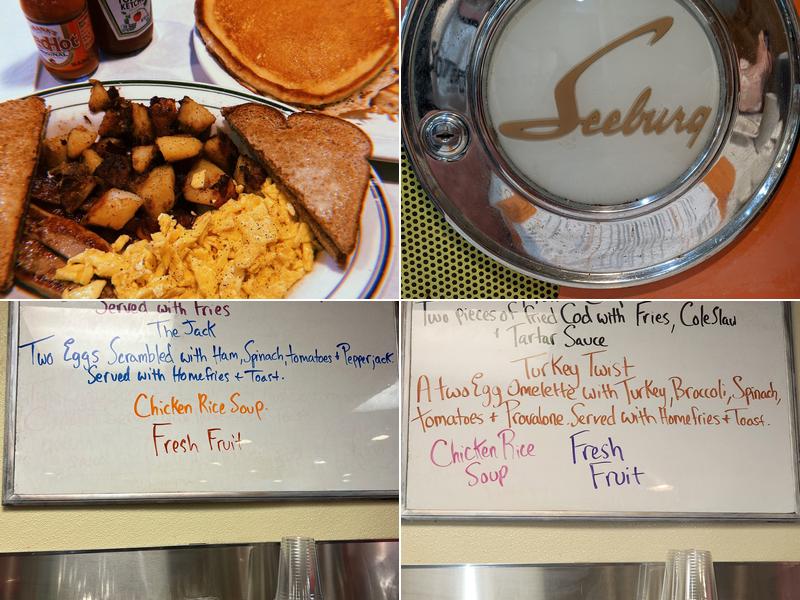 RedHot
KETCHUP
Seeburg
Served with Fries
The Jack
Two Eggs Scrambled with Ham, Spinach, tomatoes + Pepperjack.
Served with Homefries + Toast.
Chicken Rice Soup.
Fresh Fruit
Two pieces of Fried Cod with Fries, Cole Slaw
+ Tartar Sauce
Turkey Twist
A two Egg Omelette with Turkey, Broccoli, Spinach,
tomatoes + Provalone. Served with Homefries + Toast.
Chicken Rice
Soup
Fresh
Fruit